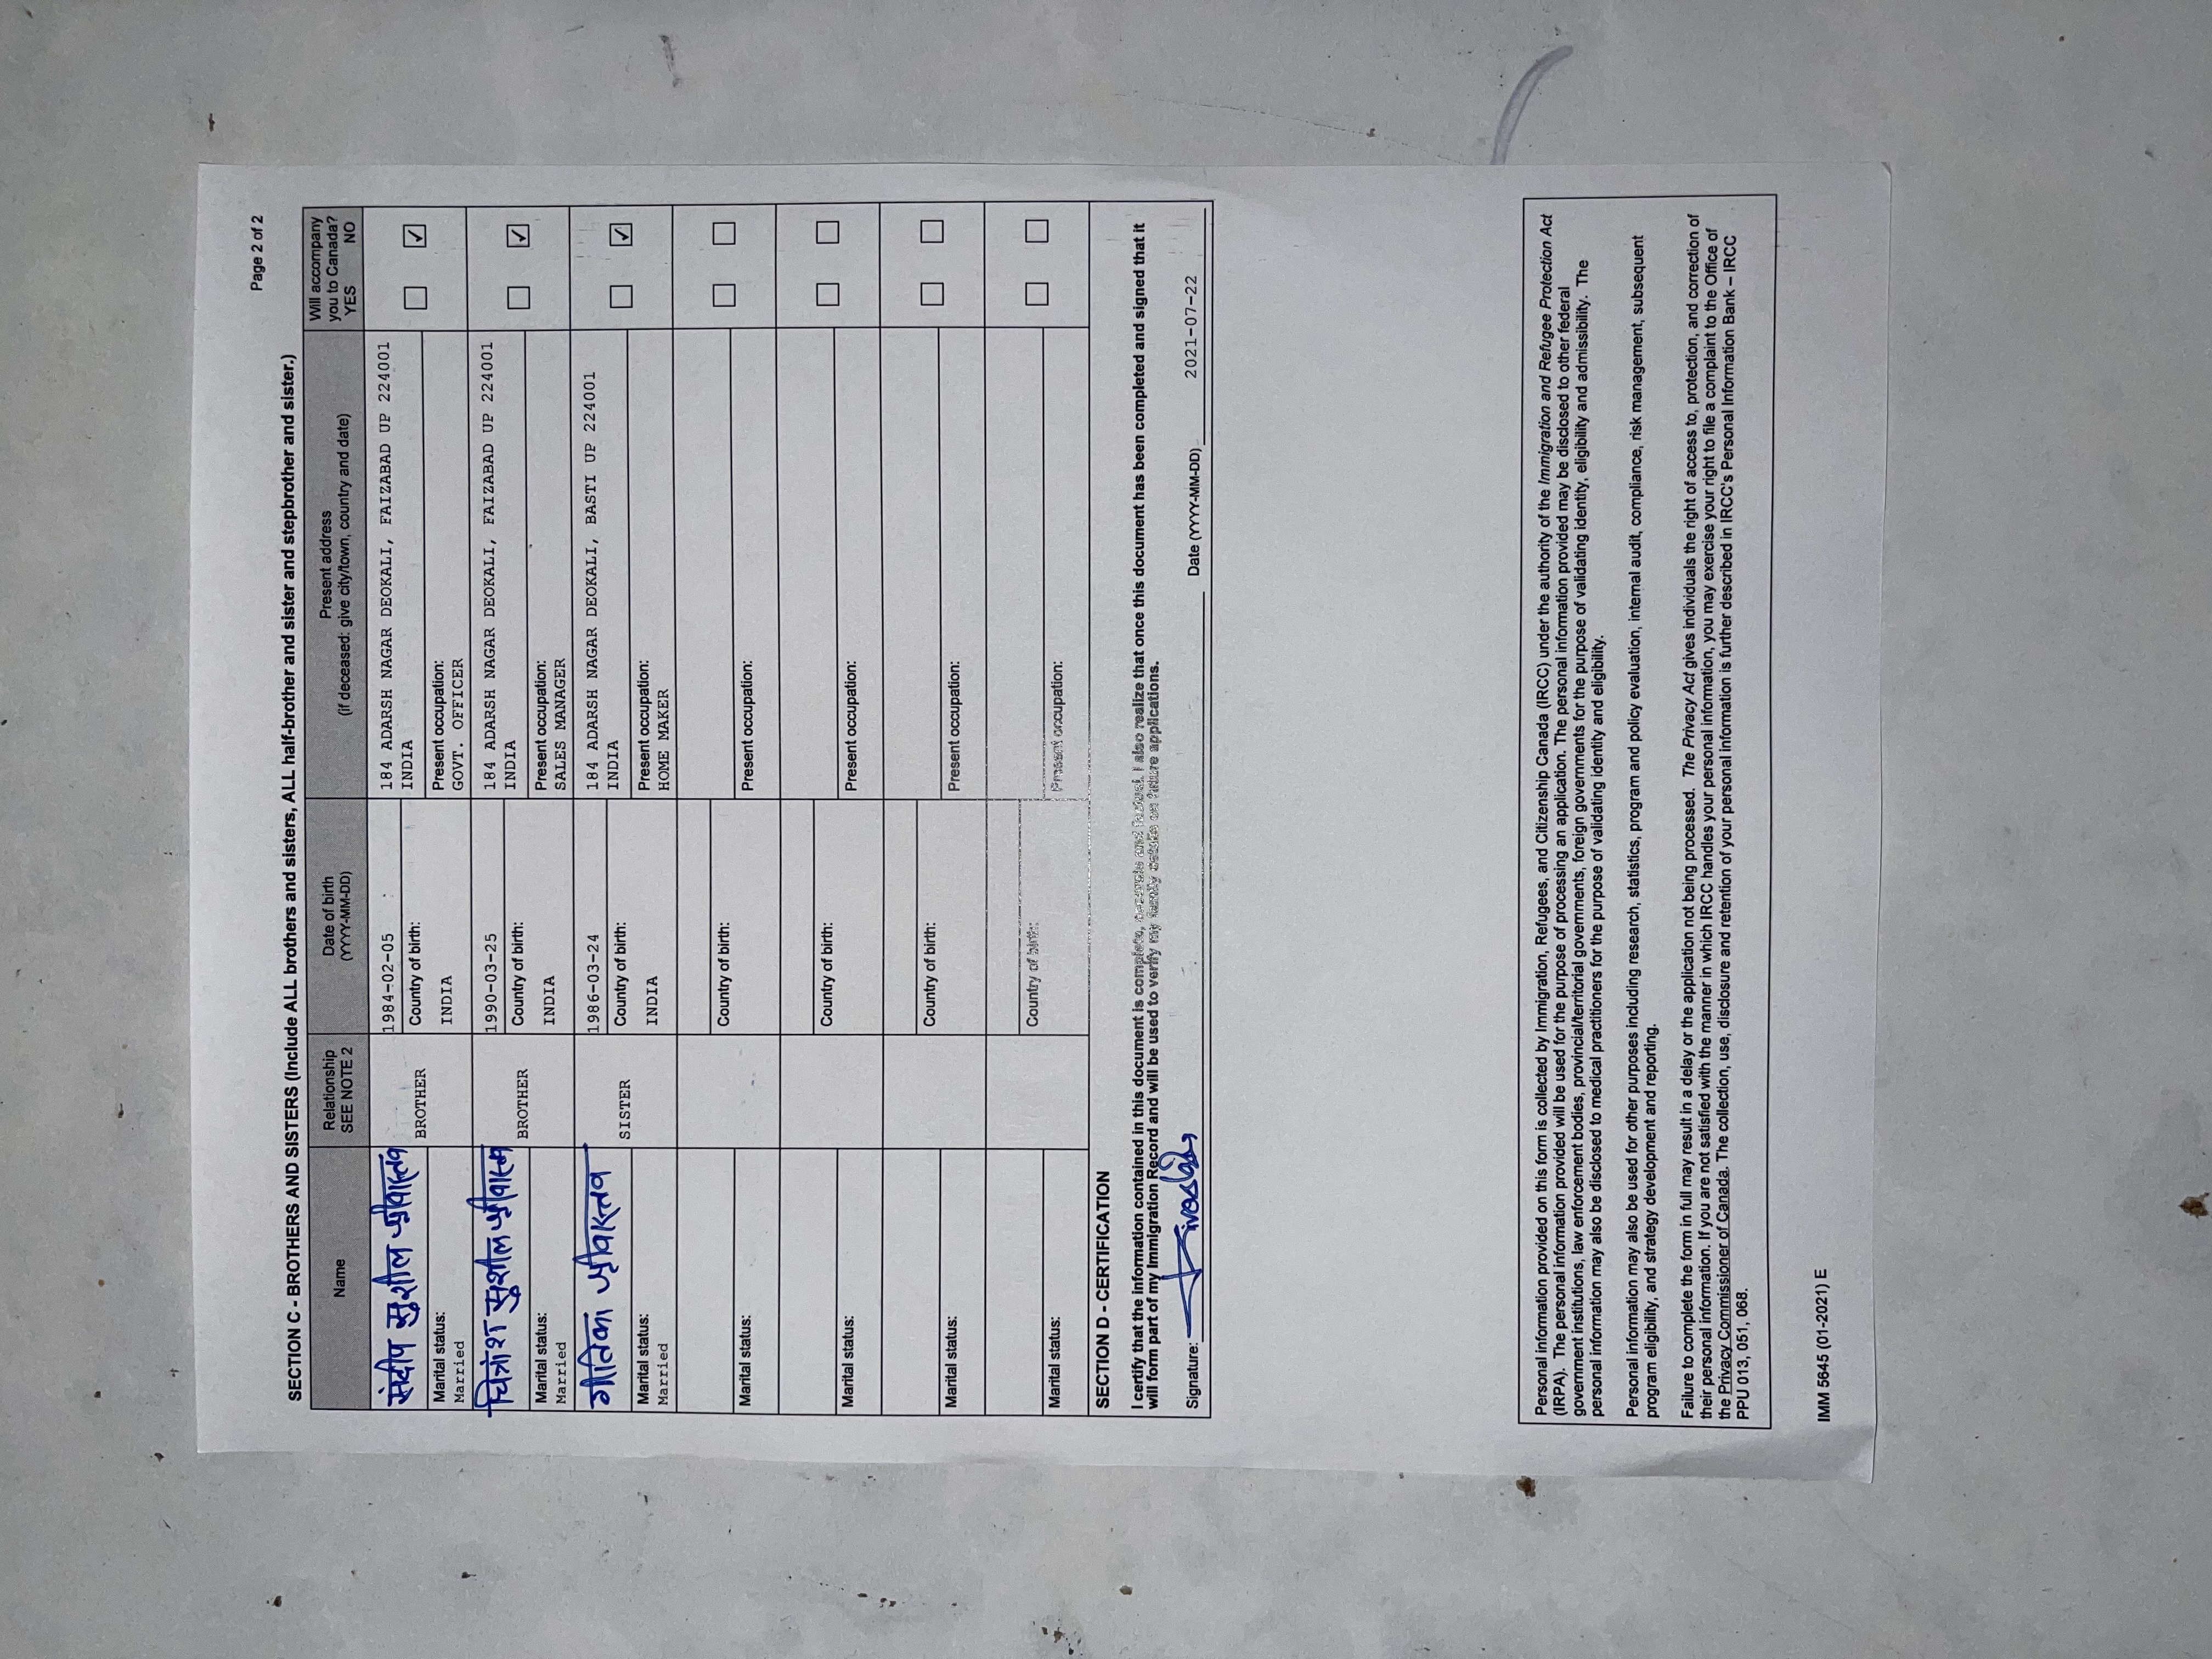 Page 2 of 2
SECTION C - BROTHERS AND SISTERS (Include ALL brothers and sisters, ALL half-brother and sister and stepbrother and sister.)
Name
Relationship
SEE NOTE 2
Date of birth
(YYYY-MM-DD)
Present address
(if deceased: give city/town, country and date)
Will accompany
you to Canada?
YES NO
संदीप सुशील श्रीवास्तव
Marital status:
Married
BROTHER
1984-02-05
Country of birth:
INDIA
184 ADARSH NAGAR DEOKALI, FAIZABAD UP 224001
INDIA
Present occupation:
GOVT. OFFICER
चित्रांश सुशील श्रीवास्तव
Marital status:
Married
BROTHER
1990-03-25
Country of birth:
INDIA
184 ADARSH NAGAR DEOKALI, FAIZABAD UP 224001
INDIA
Present occupation:
SALES MANAGER
गीतिका श्रीवास्तव
Marital status:
Married
SISTER
1986-03-24
Country of birth:
INDIA
184 ADARSH NAGAR DEOKALI, BASTI UP 224001
INDIA
Present occupation:
HOME MAKER
Marital status:
Country of birth:
Present occupation:
Marital status:
Country of birth:
Present occupation:
Marital status:
Country of birth:
Present occupation:
Marital status:
Country of birth:
Present occupation:
SECTION D - CERTIFICATION
I certify that the information contained in this document is complete, accurate and factual. I also realize that once this document has been completed and signed that it
will form part of my Immigration Record and will be used to verify my family details on future applications.
Signature:
Date (YYYY-MM-DD) 2021-07-22
Personal information provided on this form is collected by Immigration, Refugees, and Citizenship Canada (IRCC) under the authority of the Immigration and Refugee Protection Act
(IRPA). The personal information provided will be used for the purpose of processing an application. The personal information provided may be disclosed to other federal
government institutions, law enforcement bodies, provincial/territorial governments, foreign governments for the purpose of validating identity, eligibility and admissibility. The
personal information may also be disclosed to medical practitioners for the purpose of validating identity and eligibility.
Personal information may also be used for other purposes including research, statistics, program and policy evaluation, internal audit, compliance, risk management, subsequent
program eligibility, and strategy development and reporting.
Failure to complete the form in full may result in a delay or the application not being processed. The Privacy Act gives individuals the right of access to, protection, and correction of
their personal information. If you are not satisfied with the manner in which IRCC handles your personal information, you may exercise your right to file a complaint to the Office of
the Privacy Commissioner of Canada. The collection, use, disclosure and retention of your personal information is further described in IRCC's Personal Information Bank – IRCC
PPU 013, 051, 068.
IMM 5645 (01-2021) E